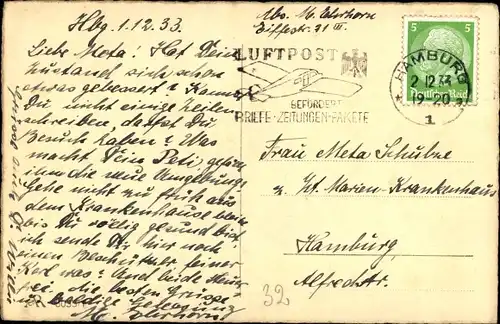 Hbg. 1.12.33.
Liebe Meta! Hat Dein
Zustand sich schon
etwas gebessert? Kannst
Du nicht einige Zeilen
schreiben, darfst Du
Besuch haben? Was
macht Dein Peti,
ihm die neue Umgebung?
Gehe nicht zu früh aus
dem Krankenhause
bis Du völlig gesund bist.
ich sende Dir hier noch
einen Beschützer feiner
Kerl was? Und beide
die besten Grüsse
baldige Genesung
M.
Abs. M.
Eiffestr. 31 III.
LUFTPOST
BEFÖRDERT
BRIEFE·ZEITUNGEN·PAKETE
HAMBURG
2.12.33
19-20
1
5 5
Deutsches Reich
Frau Meta Schulze
z. Zt. Marien-Krankenhaus
Hamburg
Alfredstr.
32